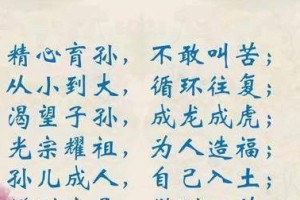 精心育孙，不敢叫苦；
从小到大，循环往复；
渴望子孙，成龙成虎；
光宗耀祖，为人造福；
孙儿成人，自己入土；